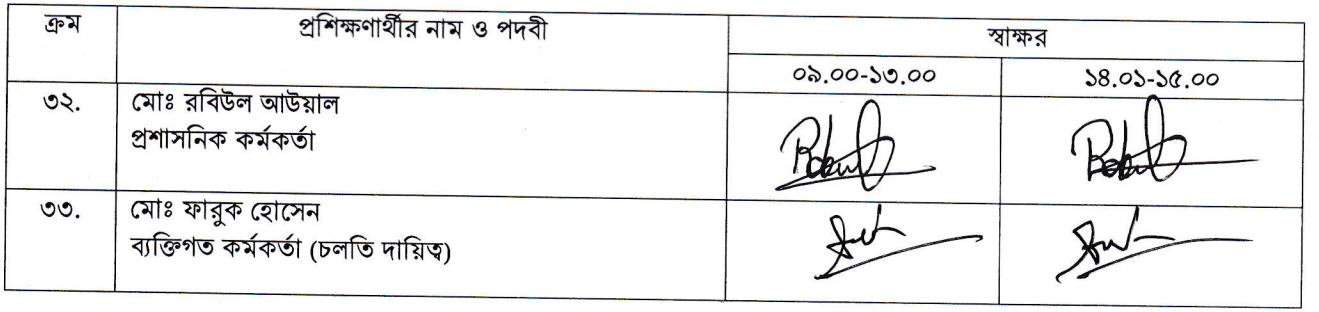 ক্রম প্রশিক্ষণার্থীর নাম ও পদবী স্বাক্ষর
০৯.০০-১৩.০০ ১৪.০১-১৫.০০
৩২. মোঃ রবিউল আউয়াল
প্রশাসনিক কর্মকর্তা
৩৩. মোঃ ফারুক হোসেন
ব্যক্তিগত কর্মকর্তা (চলতি দায়িত্ব)